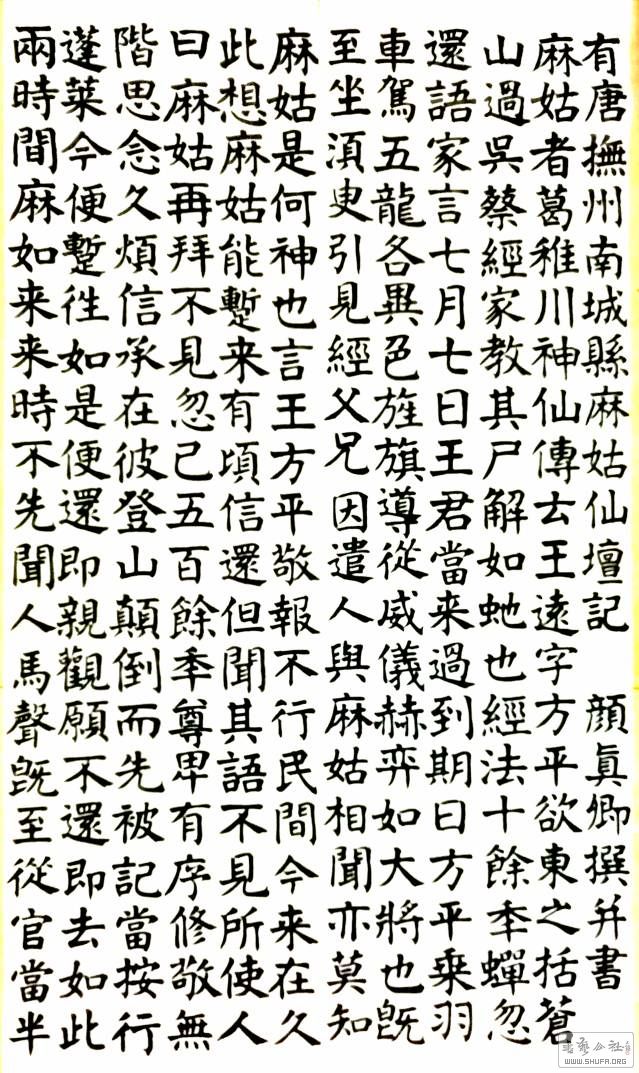 有唐撫州南城縣麻姑仙壇記 顏真卿撰并書
麻姑者葛稚川神仙傳云王遠字方平欲東之括蒼
山過吳蔡經家教其尸解如虵也經法十餘秊蟬忽
還語家言七月七日王君當来過到期日方平乗羽
車駕五龍各異色旌旗導從威儀赫弈如大將也既
至坐須臾引見經父兄因遣人與麻姑相聞亦莫知
麻姑是何神也言王方平敬報不行民間今来在久
此想麻姑能蹔来有頃信還但聞其語不見所使人
曰麻姑再拜不見忽已五百餘秊尊卑有序修敬無
階思念久煩信承在彼登山顛倒而先被記當按行
蓬萊今便蹔徃如是便還即親觀願不還即去如此
兩時間麻如来来時不先聞人馬聲既至從官當半
WWW.SHUFA.ORG